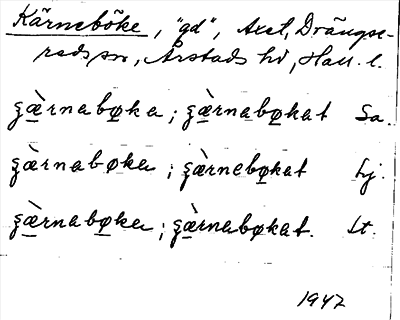 Kärneböke, "gd", Axel, Drängse-
reds sn, Årstads hd, Hall. l.
ʒæ̀rnabøka; ʒæ̀rnabøkat Sa.
ʒæ̀rnabøka; ʒæ̀rnebøkat Lj.
ʒæ̀rnabøka; ʒæ̀rnabøkat. St.
1947